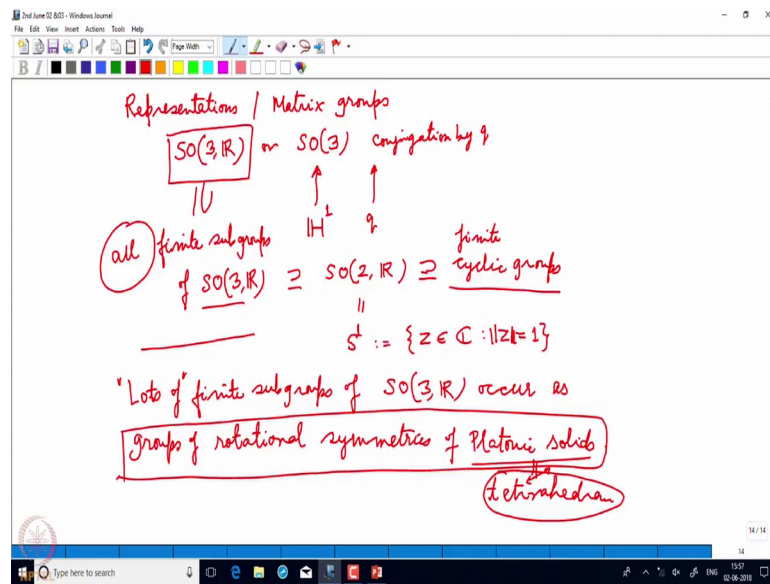 2nd June 02 &03 - Windows Journal
File Edit View Insert Actions Tools Help
Page Width
B I
Representations / Matrix groups
SO(3,ℝ) or SO(3) conjugation by q
⊆
ℍ¹ q
all finite subgroups finite
of SO(3,ℝ) ⊇ SO(2,ℝ) ⊇ cyclic groups
=
S¹ := {z ∈ ℂ : ||z|| = 1}
"Lots of" finite subgroups of SO(3,ℝ) occur as
groups of rotational symmetries of Platonic solids
tetrahedran
14 / 14
14
NPTEL
Type here to search
ENG
15:57
02-06-2018